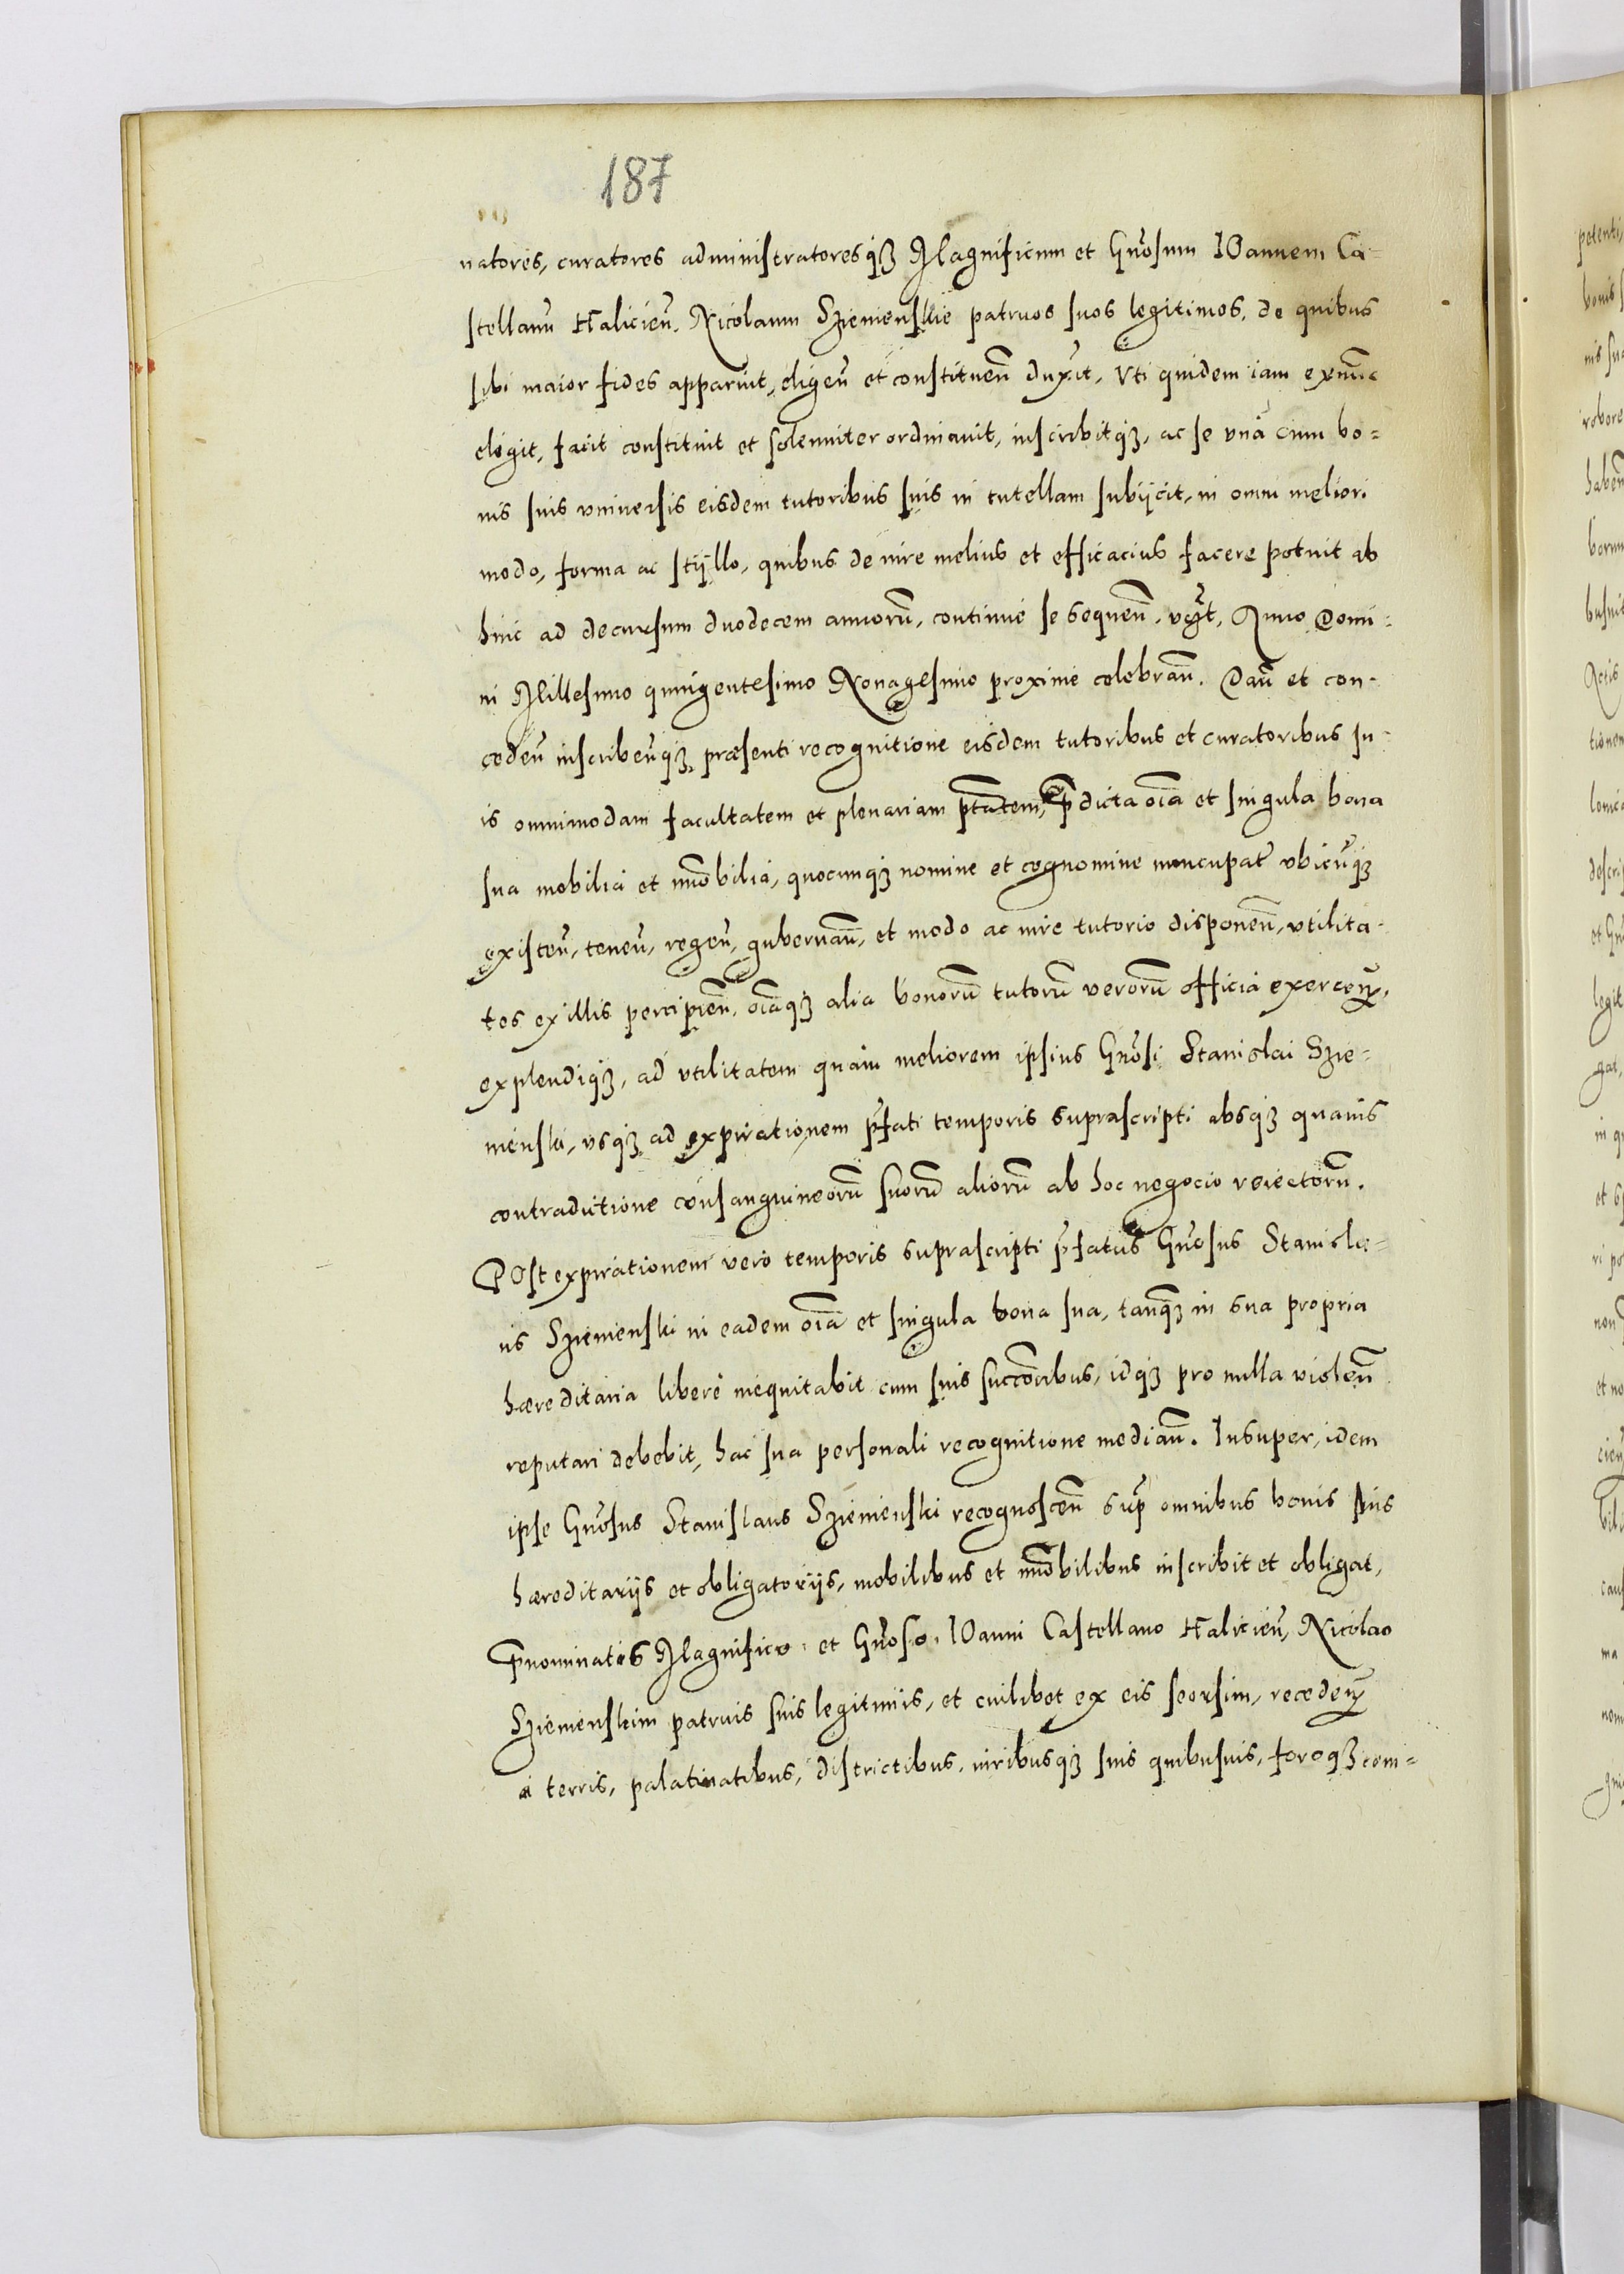 187
natores, curatores administratoresq́ꝫ Magnificum et Gnõsum IOannem Ca-
stellanũ Halicieñ. Nicolaum Szienienskie patruos suos legitimos, de quibus
sibi maior fides apparuit, eligeñ et constitueñ duxit. Vti quidem iam exnũc
elegit, facit constituit et solenniter ordinauit, inscribitq́ꝫ, ac se vnà cum bo=
nis suis vniuersis eisdem tutoribus suis in tutellam subijcit, in omni meliori
modo, forma ac stÿllo, quibus de iure melius et efficacius facere potuit ab
hinc ad decursum duodecem annorũ, continuè se sequeñ. vꝫt, Anno Domi=
ni Millesimo quingentesimo Nonagesimo proximè celebrañ. Dañ et con-
cedeñ inscribeñq́ꝫ præsenti recognitione eisdem tutoribus et curatoribus su-
is omnimodam facultatem et plenariam ptãtem, p̃dicta oĩa et singula bona
sua mobilia et im̃obilia, quocumq́ꝫ nomine et cognomine nuncupat̃ vbicũq́ꝫ
existeñ, teneñ, regeñ, guberñañ, et modo ac iure tutorio disponeñ, vtilita-
tes ex illis percipieñ, oĩaq́ꝫ alia bonorũ tutorũ verorũ officia exerceñ,
explendiq́ꝫ, ad vtilitatem quàm meliorem ipsius Gnõsi Stanislai Szie-
nienski, vsq́ꝫ ad expirationem p̃fati temporis suprascripti absq́ꝫ quauis
contradictione consanguineorũ suorũ aliorũ ab hoc negocio reiectorũ.
POst expirationem verò temporis suprascripti p̃fatus Gnõsus Stanisla-
us Szienienski in eadem oĩa et singula bona sua, tanq́ꝫ in sua propria
hæreditaria liberè inequitabit cum suis succ̃oribus, idq́ꝫ pro nulla violeñ
reputari debebit, hac sua personali recognitione mediañ. Insuper, idem
ipse Gnõsus Stanislaus Szienienski recognosceñ sup̃ omnibus bonis suis
hæreditarijs et obligatorijs, mobilibus et im̃obilibus inscribit et obligat,
p̃nominatis Magnifico, et Gnõso, IOanni Castellano Halicieñ, Nicolao
Szienienskim patruis suis legitimis, et cuilibet ex eis seorsim, recedeñ
à terris, palatinatibus, districtibus, iuribusq́ꝫ suis quibusuis, foroq́ꝫ com=